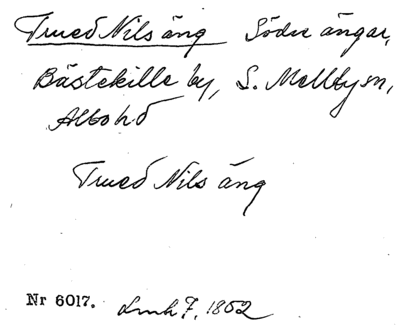 Trued Nils äng Södra ängar,
Bästekille by, S. Mellby sn,
Albo hd
Trued Nils äng
Nr 6017. Lmk 7, 1852